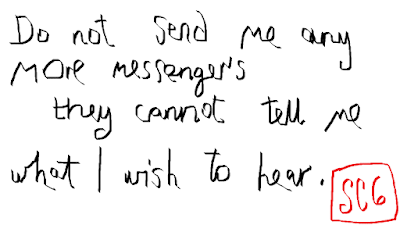 Do not send me any
more messenger's
they cannot tell me
what I wish to hear.
SC6